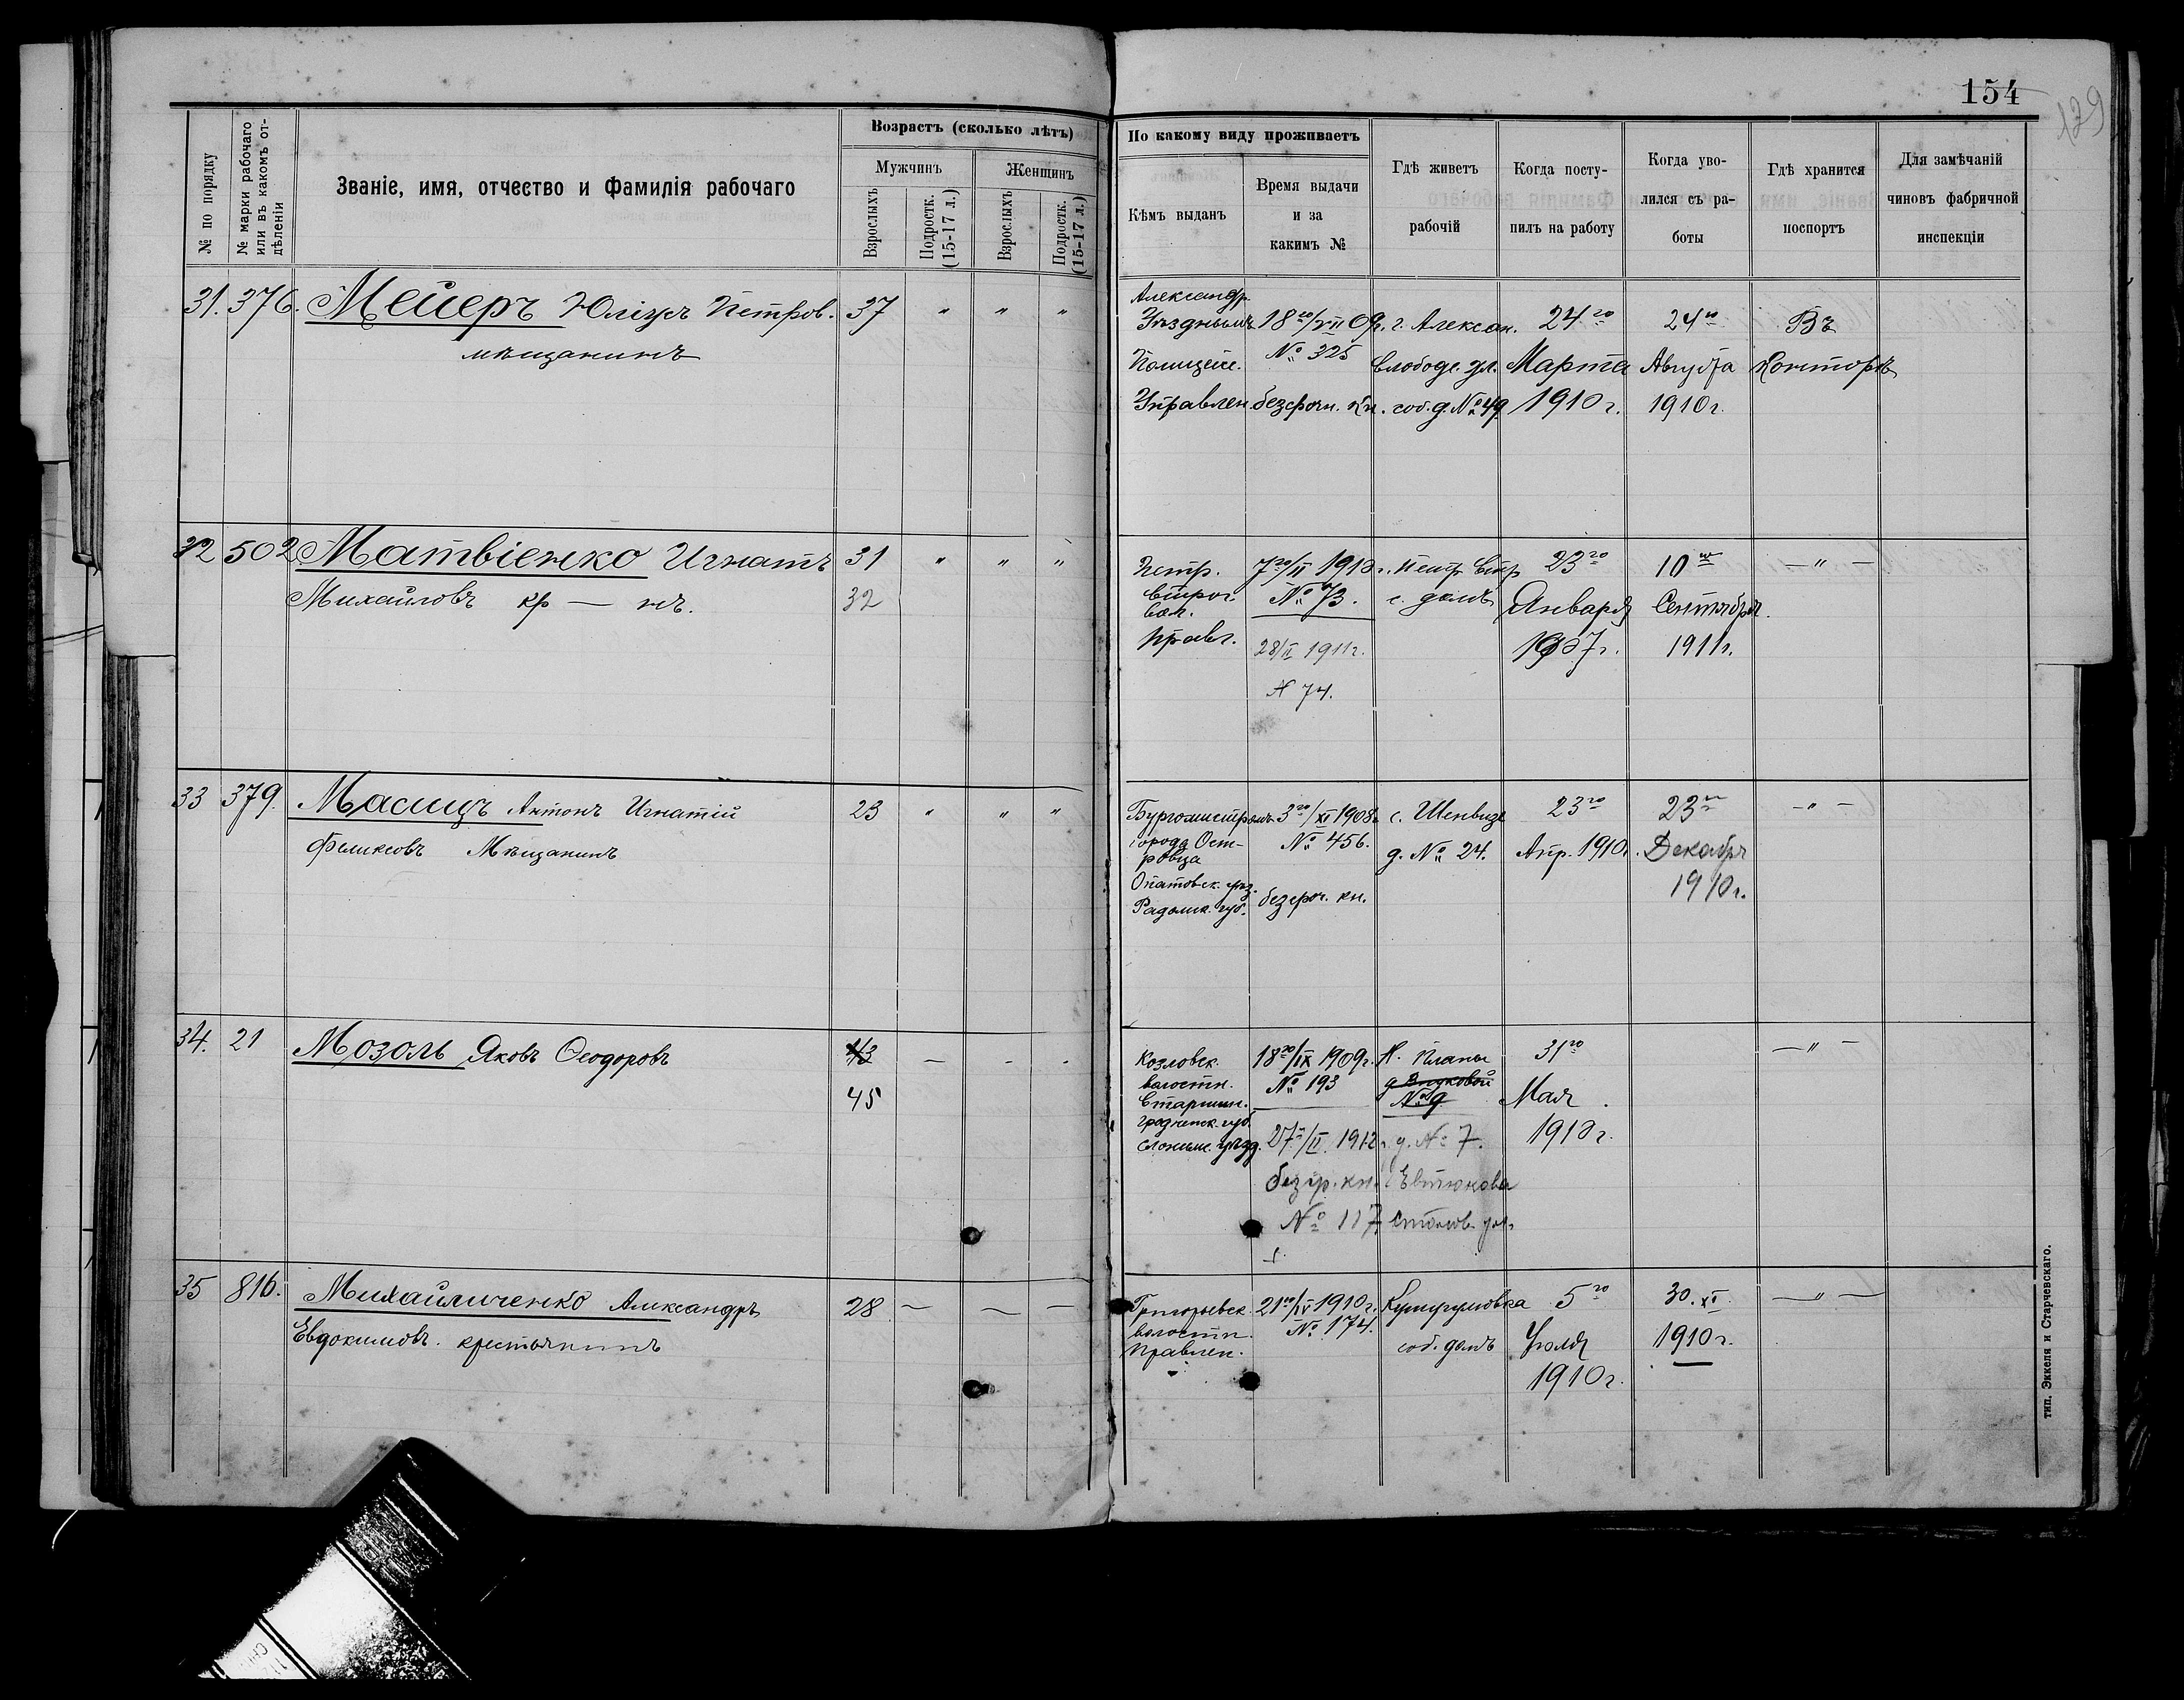 154
129
№ по порядку
№ марки рабочаго или въ какомъ отдѣленіи
Званіе, имя, отчество и фамилія рабочаго
Возрастъ (сколько лѣтъ)
Мужчинъ
Женщинъ
Взрослыхъ
Подростк. (15-17 л.)
Взрослыхъ
Подростк. (15-17 л.)
По какому виду проживаетъ
Кѣмъ выданъ
Время выдачи
и за
какимъ №
Гдѣ живетъ
рабочій
Когда посту-
пилъ на работу
Когда уво-
лился съ ра-
боты
Гдѣ хранится
поспортъ
Для замѣчаній
чиновъ фабричной
инспекціи
31. 376. Мейеръ Юліусъ Петров. 37 " " "
мѣщанинъ
Александр.
Уѣзднымъ
Полицейс.
Управлен.
18го/VII 09г.
№ 325
безсрочн. кн.
г. Алексан.
Слободс. ул.
соб. д. № 49
24го
Марта
1910 г.
24го
Августа
1910 г.
Въ
Конторѣ
32 502 Матвіенко Игнатъ 31 " " "
Михайловъ кр — нъ. 32
Петр.
вол.
Правл.
7го/II 1910 г.
№ 73.
28/II 1911 г.
№ 74.
с. домъ
23го
Января
1907 г.
10го
Сентября.
1911 г.
— " —
33 379. Масицъ Антонъ Игнатій 23 " " "
Феликсовъ Мѣщанинъ
Бургомистромъ
города Ост-
ровца
Опатовск. уѣз.
Радомск. губ.
3го/XI 1908 г.
№ 456.
безсроч. кн.
с. Шенвизе
д. № 24.
23го
Апр. 1910 г.
23го
Декабря
1910 г.
— " —
34. 21 Мозоль Яковъ Ѳеодоровъ 43 — - -
45
Козловск.
волостн.
Старшин.
Гродненск. губ.
Слонимс. уѣзд.
18го/IX 1909 г.
№ 193
27го/II. 1912 г.
безср. кн.
№ 117.
Н. Планы
№ 9
д. № 7.
Евтюкова
31го
Мая
1910 г.
— " —
35 816. Михайличенко Александръ 28 — — —
Евдокимовъ. крестьянинъ
Григорьевск.
волостн.
Правлен.
21го/IV 1910 г.
№ 174.
Кушугумовка
соб. домъ
5го
Іюля
1910 г.
30. XI.
1910 г.
— " —
тип. Эккеля и Старчевскаго.